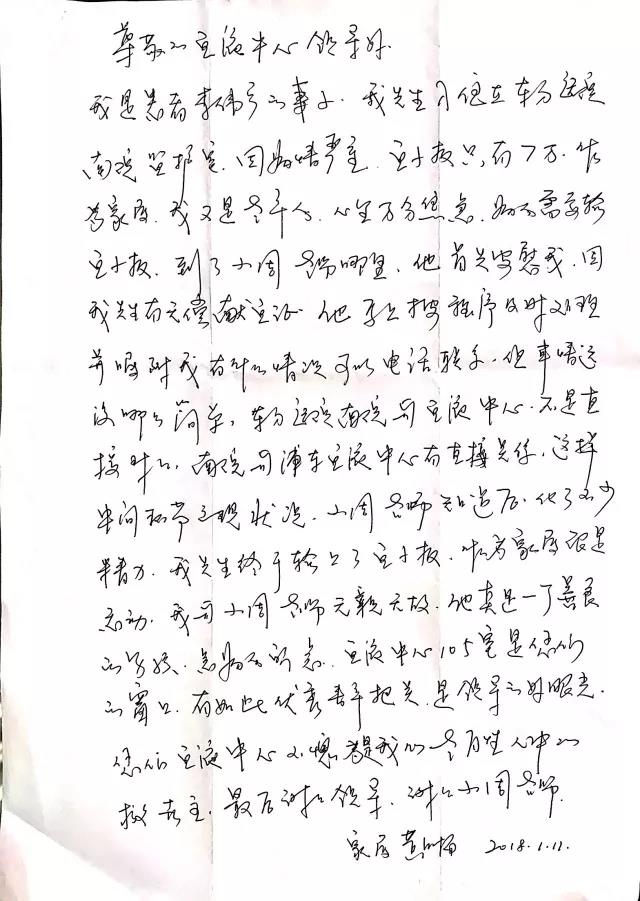 尊敬的血液中心领导好.
我是患者李伟的妻子. 我先生住在东方医院
南院监护室. 因病情严重. 血小板只有7万. 作
为家属. 我又是老年人. 心里万分焦急. 病人需要输
血小板. 到了小周老师哪里. 他首先安慰我. 因
我先生有无偿献血证. 他马上按程序及时处理
并嘱附我有什么情况可以电话联系. 但事情远
没哪么简单, 东方医院南院与血液中心. 不是直
接对口. 南院与浦东血液中心有直接关系. 这样
中间环节出现状况. 小周老师知道后. 化了不少
精力. 我先生终于输上了血小板. 作为家属很是
感动. 我与小周老师无亲无故. 他真是一个善良
的好孩. 急病人所急. 血液中心105室是您们
的窗口. 有如此优秀青年把关. 是领导的好眼光.
您们血液中心不愧是我们老百姓心中的
救苦主. 最后谢谢领导. 谢谢小周老师.
家属 黄 2018.1.11.